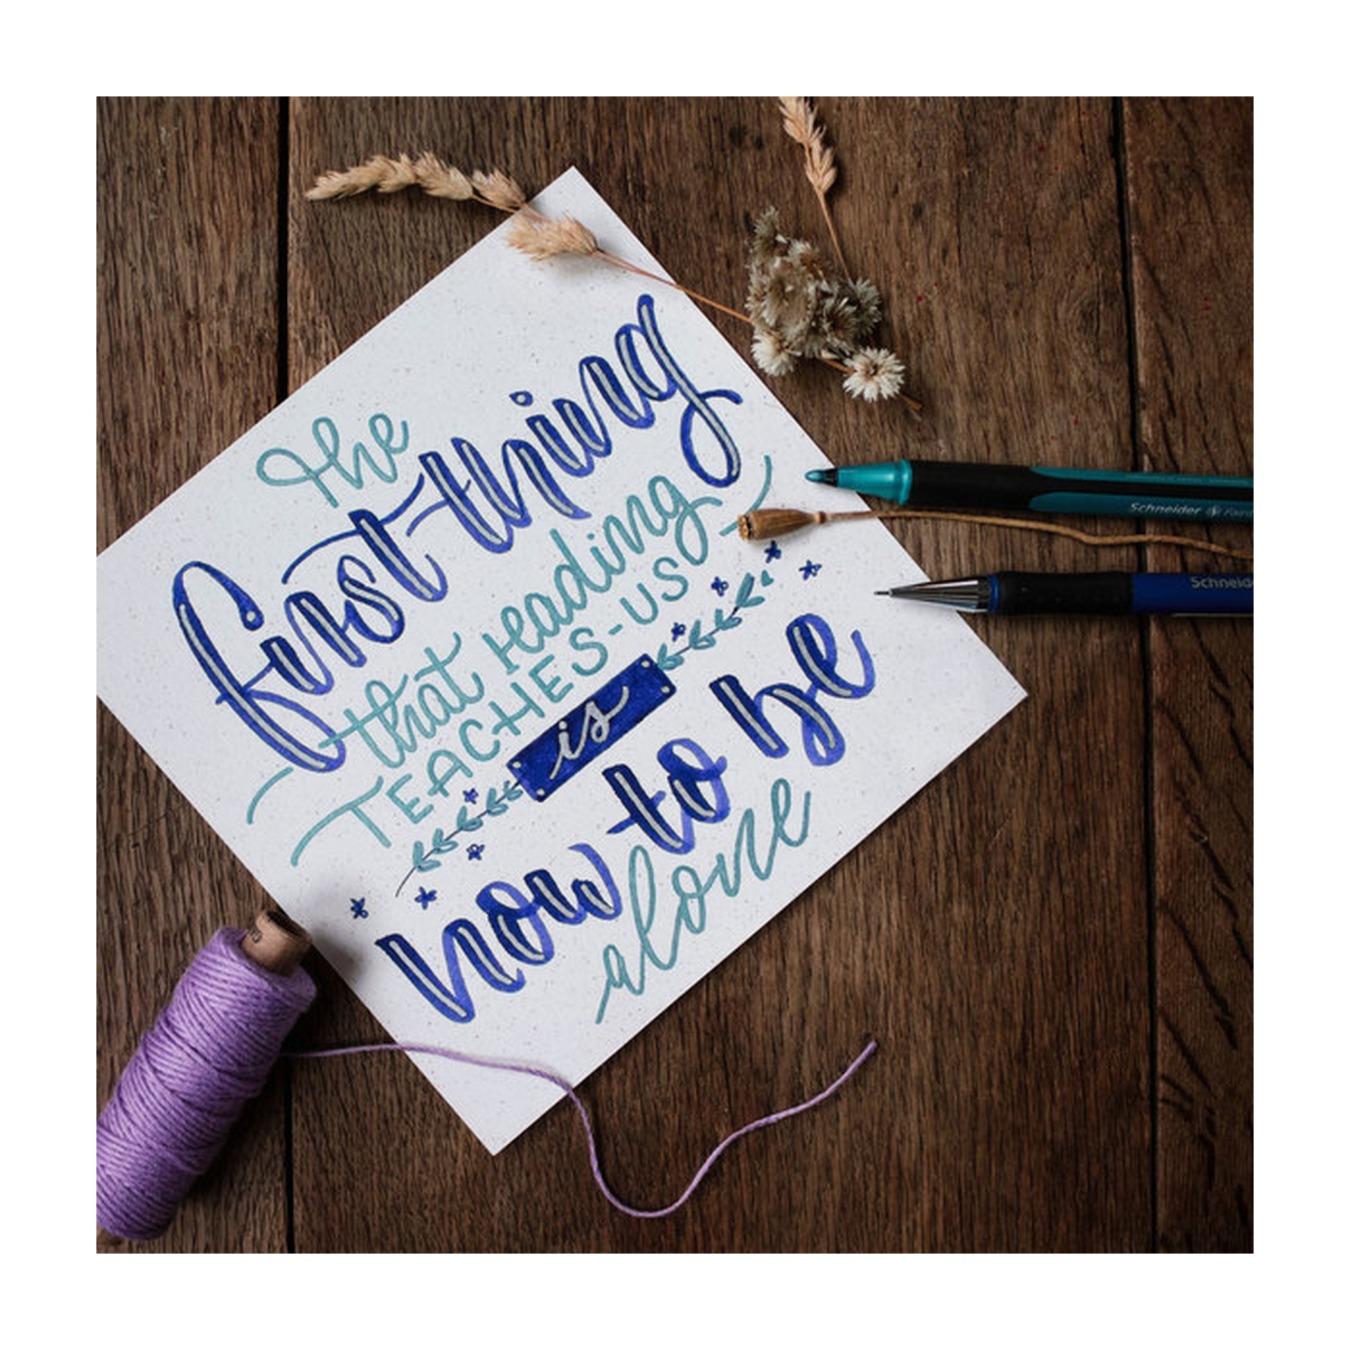 the
first thing
that reading
TEACHES-US
is
how to be
alone
Schneider